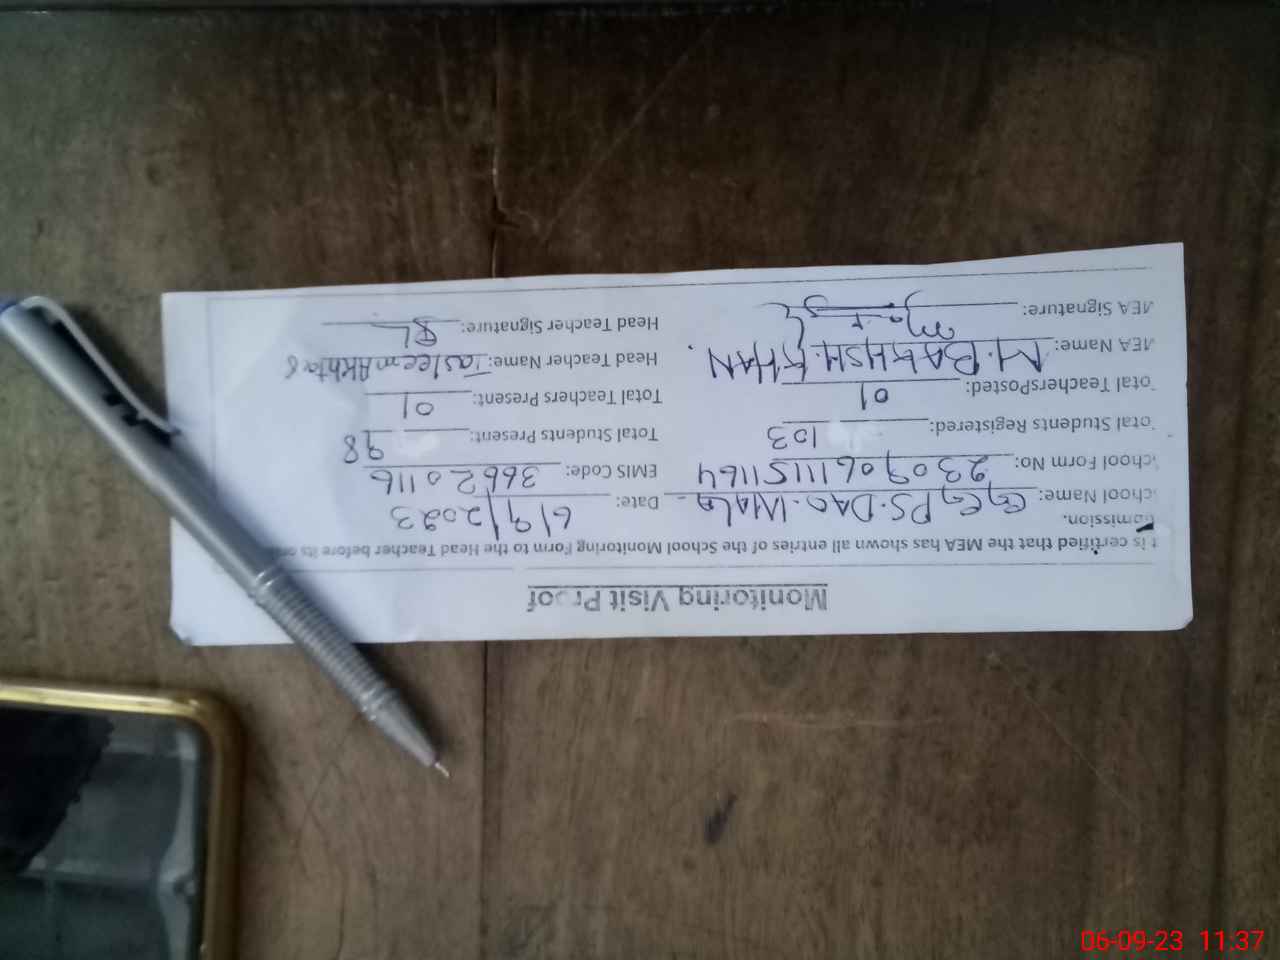 Monitoring Visit Proof
t is certified that the MEA has shown all entries of the School Monitoring Form to the Head Teacher before its
mission.
chool Name: GGPS. DAO. WALA Date: 6/9/2023
chool Form No: 23090611151164 EMIS Code: 36620116
otal Students Registered: 103 Total Students Present: 98
otal TeachersPosted: 01 Total Teachers Present: 01
MEA Name: M. BAKHSH. KHAN. Head Teacher Name: Tasleem Akhtar
MEA Signature: Head Teacher Signature:
06-09-23 11:37